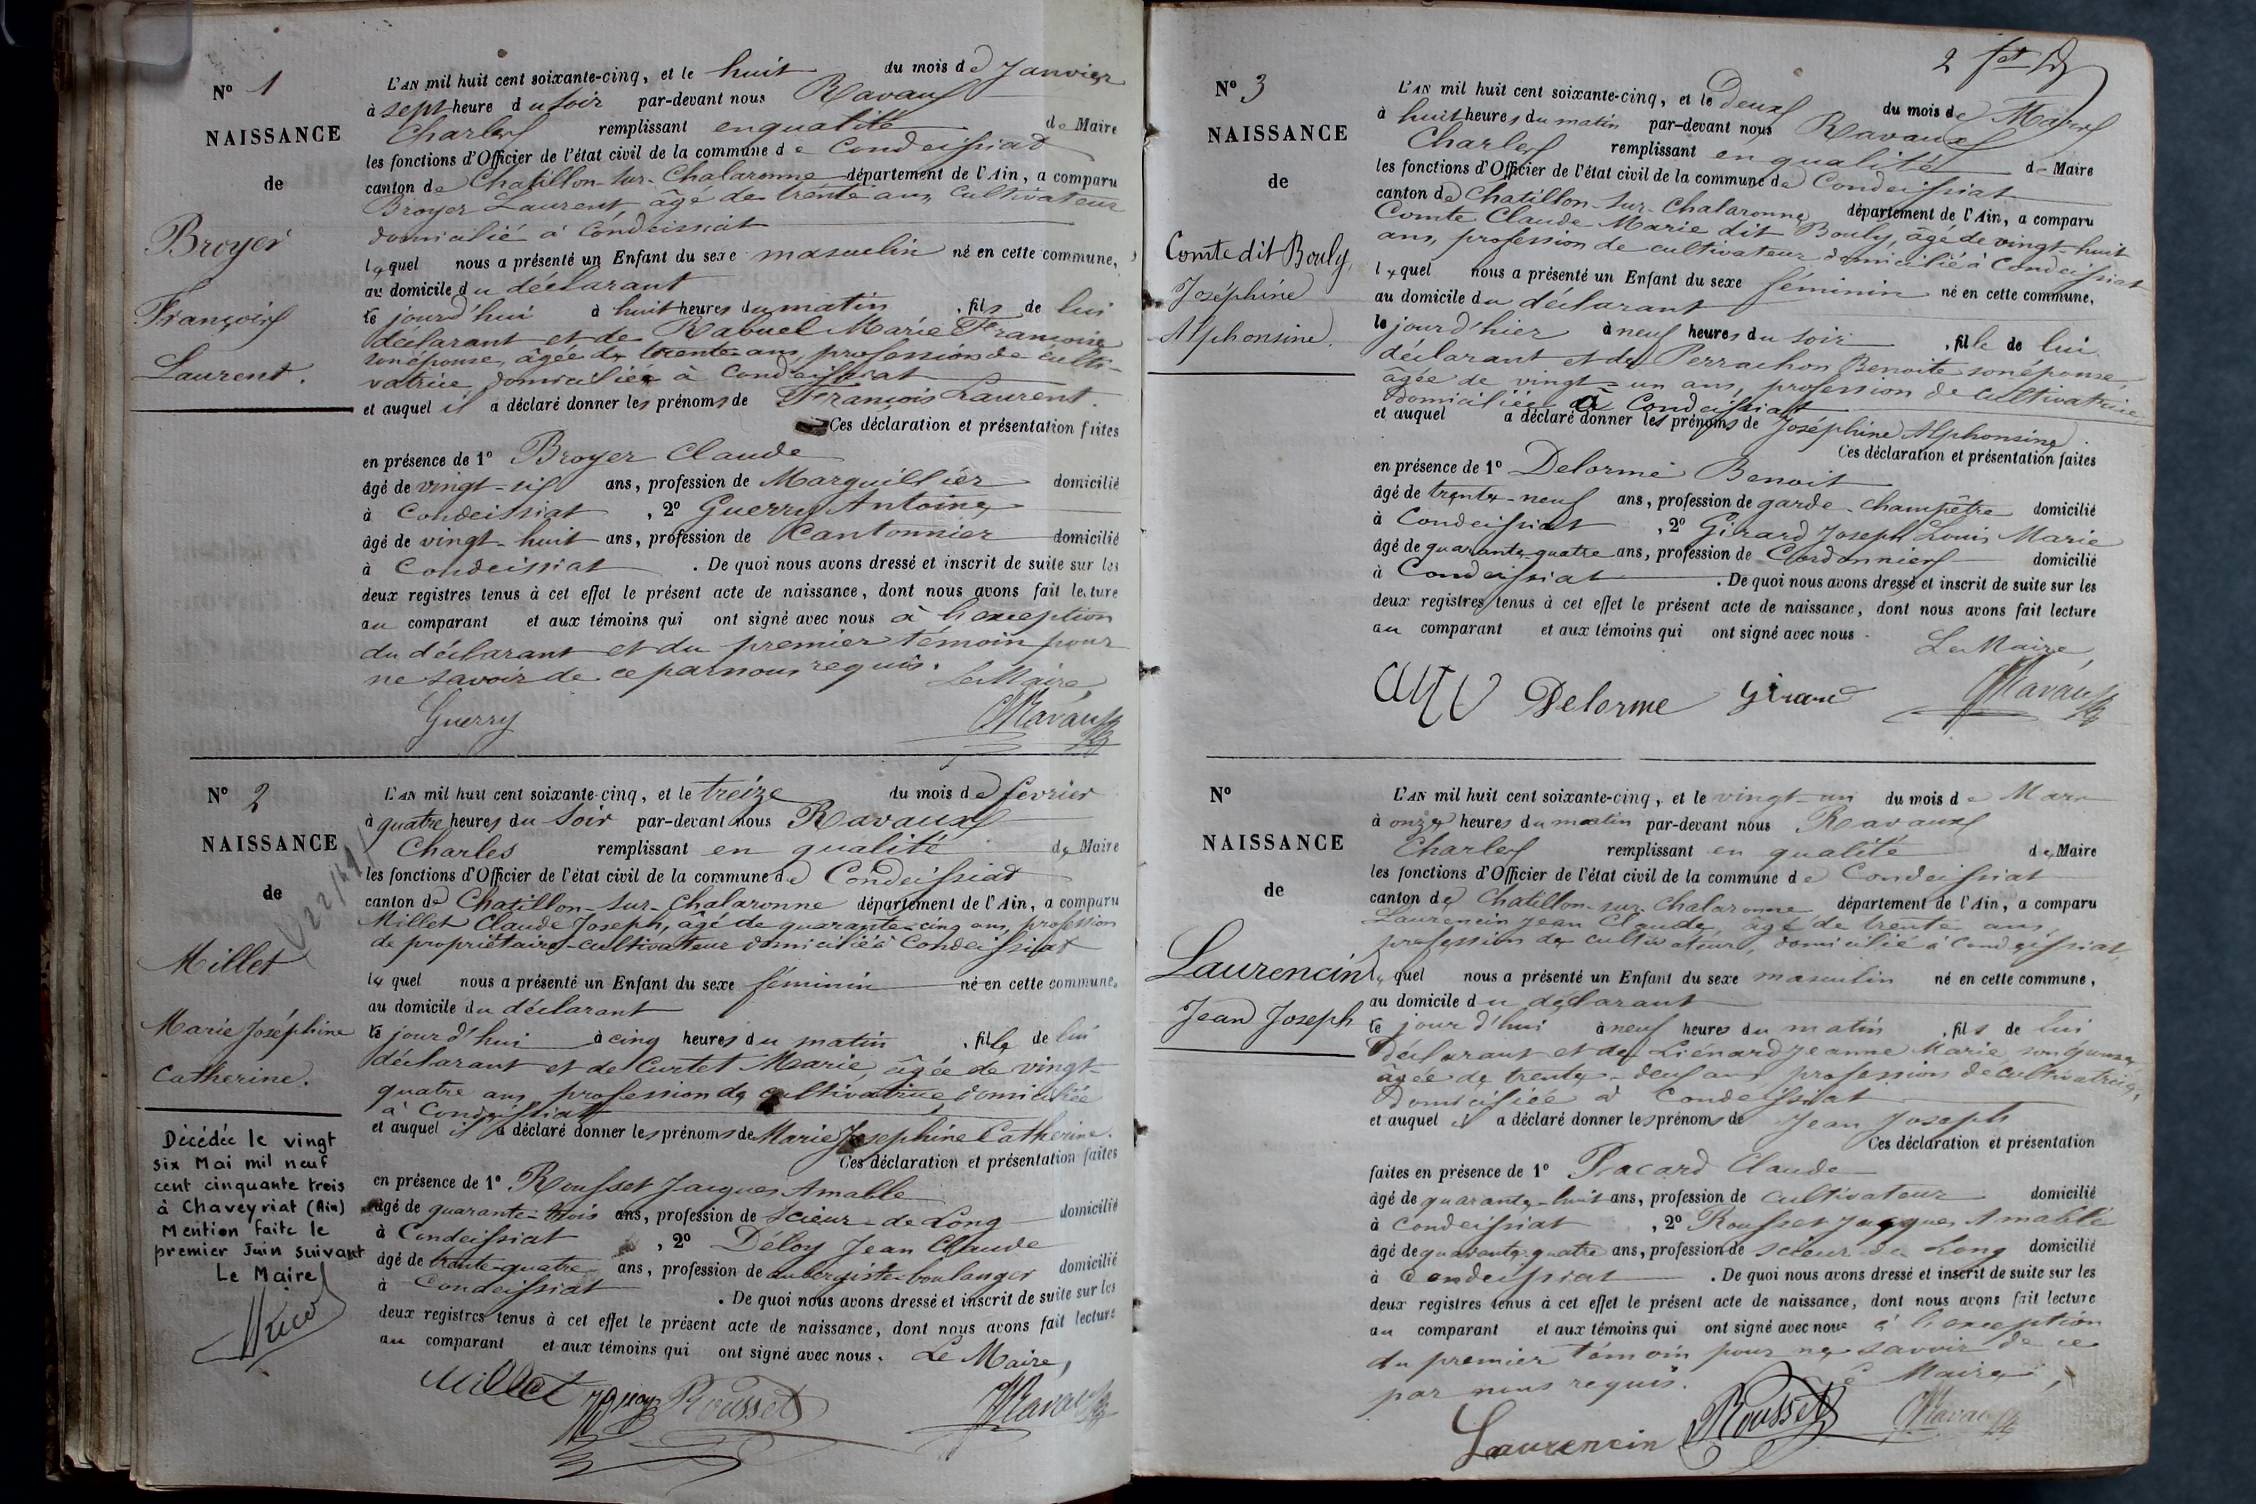 Nº 1
NAISSANCE
de
Broyer
François
Laurent.
L'AN mil huit cent soixante-cinq, et le huit du mois de Janvier
à sept heure du soir par-devant nous Ravaux
Charles remplissant en qualité de Maire
les fonctions d'Officier de l'état civil de la commune de Condeissiat
canton de Chatillon-sur-Chalaronne département de l'Ain, a comparu
Broyer Laurent, âgé de trente ans, cultivateur
domicilié à Condeissiat
lequel nous a présenté un Enfant du sexe masculin né en cette commune,
au domicile du déclarant
le jourd'hui à huit heures du matin, fils de lui
déclarant et de Rabuel Marie Françoise
son épouse, âgée de trente ans, profession de culti-
vatrice domiciliée à Condeissiat
et auquel il a déclaré donner les prénoms de François Laurent.
Ces déclaration et présentation faites
en présence de 1º Broyer Claude
âgé de vingt-six ans, profession de Marguillier domicilié
à Condeissiat, 2º Guerry Antoine
âgé de vingt-huit ans, profession de Cantonnier domicilié
à Condeissiat. De quoi nous avons dressé et inscrit de suite sur les
deux registres tenus à cet effet le présent acte de naissance, dont nous avons fait lecture
au comparant et aux témoins qui ont signé avec nous à l'exception
du déclarant et du premier témoin pour
ne savoir de ce par nous requis. Le Maire,
Guerry Ravaux
Nº 2
NAISSANCE
de
Millet
Marie Joséphine
Catherine.
Décédée le vingt
six Mai mil neuf
cent cinquante trois
à Chaveyriat (Ain)
Mention faite le
premier Juin suivant
Le Maire
L'AN mil huit cent soixante-cinq, et le treize du mois de février
à quatre heures du soir par-devant nous Ravaux
Charles remplissant en qualité de Maire
les fonctions d'Officier de l'état civil de la commune de Condeissiat
canton de Chatillon-sur-Chalaronne département de l'Ain, a comparu
Millet Claude Joseph, âgé de quarante-cinq ans, profession
de propriétaire-cultivateur domicilié à Condeissiat
lequel nous a présenté un Enfant du sexe féminin né en cette commune,
au domicile du déclarant
le jourd'hui à cinq heures du matin, fille de lui
déclarant et de Curtet Marie, âgée de vingt-
quatre ans, profession de cultivatrice domiciliée
à Condeissiat
et auquel il a déclaré donner les prénoms de Marie Josephine Catherine.
Ces déclaration et présentation faites
en présence de 1º Rousset Jacques Amable
âgé de quarante-trois ans, profession de Scieur-de-Long domicilié
à Condeissiat, 2º Déloy Jean Claude
âgé de trente-quatre ans, profession de aubergiste-boulanger domicilié
à Condeissiat. De quoi nous avons dressé et inscrit de suite sur les
deux registres tenus à cet effet le présent acte de naissance, dont nous avons fait lecture
au comparant et aux témoins qui ont signé avec nous. Le Maire,
Millet Rousset Ravaux
2
Nº 3
NAISSANCE
de
Comte dit Bouly,
Joséphine
Alphonsine.
L'AN mil huit cent soixante-cinq, et le Deux du mois de Mars
à huit heures du matin par-devant nous Ravaux
Charles remplissant en qualité de Maire
les fonctions d'Officier de l'état civil de la commune de Condeissiat
canton de Chatillon-sur-Chalaronne département de l'Ain, a comparu
Comte Claude Marie dit Bouly, âgé de vingt-huit
ans, profession de cultivateur domicilié à Condeissiat
lequel nous a présenté un Enfant du sexe féminin né en cette commune,
au domicile du déclarant
le jourd'hier à neuf heures du soir, fille de lui
déclarant et de Perrachon Benoite son épouse,
âgée de vingt-un ans, profession de cultivatrice
domiciliée à Condeissiat
et auquel a déclaré donner les prénoms de Joséphine Alphonsine.
Ces déclaration et présentation faites
en présence de 1º Delorme Benoit
âgé de trente-neuf ans, profession de garde-champêtre domicilié
à Condeissiat, 2º Girard Joseph Louis Marie
âgé de quarante quatre ans, profession de Cordonnier domicilié
à Condeissiat. De quoi nous avons dressé et inscrit de suite sur les
deux registres tenus à cet effet le présent acte de naissance, dont nous avons fait lecture
au comparant et aux témoins qui ont signé avec nous.
Le Maire,
Delorme Girard Ravaux
Nº
NAISSANCE
de
Laurencin
Jean Joseph
L'AN mil huit cent soixante-cinq, et le vingt-un du mois de Mars
à onze heures du matin par-devant nous Ravaux
Charles remplissant en qualité de Maire
les fonctions d'Officier de l'état civil de la commune de Condeissiat
canton de Chatillon-sur-Chalaronne département de l'Ain, a comparu
Laurencin Jean Claude, âgé de trente ans,
profession de cultivateur, domicilié à Condeissiat,
lequel nous a présenté un Enfant du sexe masculin né en cette commune,
au domicile du déclarant
le jour d'hui à neuf heures du matin, fils de lui
déclarant et de Liénard Jeanne Marie son épouse,
âgée de trente-deux ans profession de cultivatrice,
domiciliée à Condeissiat
et auquel il a déclaré donner les prénoms de Jean Joseph
Ces déclaration et présentation
faites en présence de 1º Pacard Claude
âgé de quarante-huit ans, profession de cultivateur domicilié
à Condeissiat, 2º Rousset Jacques Amable
âgé de quarante-quatre ans, profession de scieur de Long domicilié
à Condeissiat. De quoi nous avons dressé et inscrit de suite sur les
deux registres tenus à cet effet le présent acte de naissance, dont nous avons fait lecture
au comparant et aux témoins qui ont signé avec nous à l'exception
du premier témoin pour ne savoir de ce
par nous requis. Le Maire,
Laurencin Rousset Ravaux